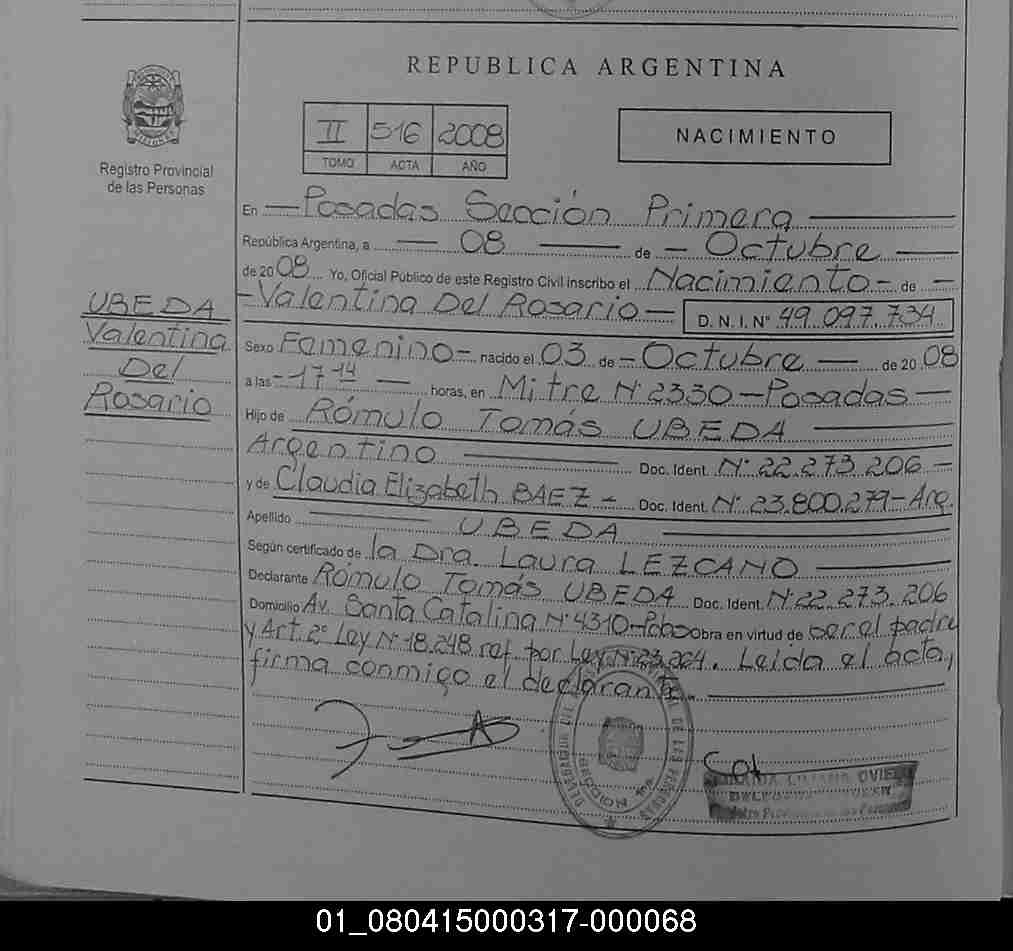 REPUBLICA ARGENTINA
II 516 2008
TOMO ACTA AÑO
NACIMIENTO
Registro Provincial
de las Personas
UBEDA
Valentina
Del
Rosario
En — Posadas Sección Primera —
República Argentina, a — 08 — de — Octubre —
de 2008 Yo, Oficial Público de este Registro Civil inscribo el Nacimiento — de —
— Valentina Del Rosario — D. N. I. Nº 49.097.734
Sexo Femenino — nacido el 03 de — Octubre — de 20 08
a las — 17 14 — horas, en Mitre Nº 2330 — Posadas —
Hijo de Rómulo Tomás UBEDA —
Argentino — Doc. Ident. Nº 22.273.206 —
y de Claudia Elizabeth BAEZ — Doc. Ident. Nº 23.800.279 — Arg.
Apellido — UBEDA —
Según certificado de la Dra. Laura LEZCANO —
Declarante Rómulo Tomás UBEDA Doc. Ident. Nº 22.273.206
Domicilio Av. Santa Catalina Nº 4310 — Pdas obra en virtud de ser el padre
y Art. 2º Ley Nº 18.248 ref. por Ley Nº 23.264. Leida el acta,
firma conmigo el declarante. —
01_080415000317-000068